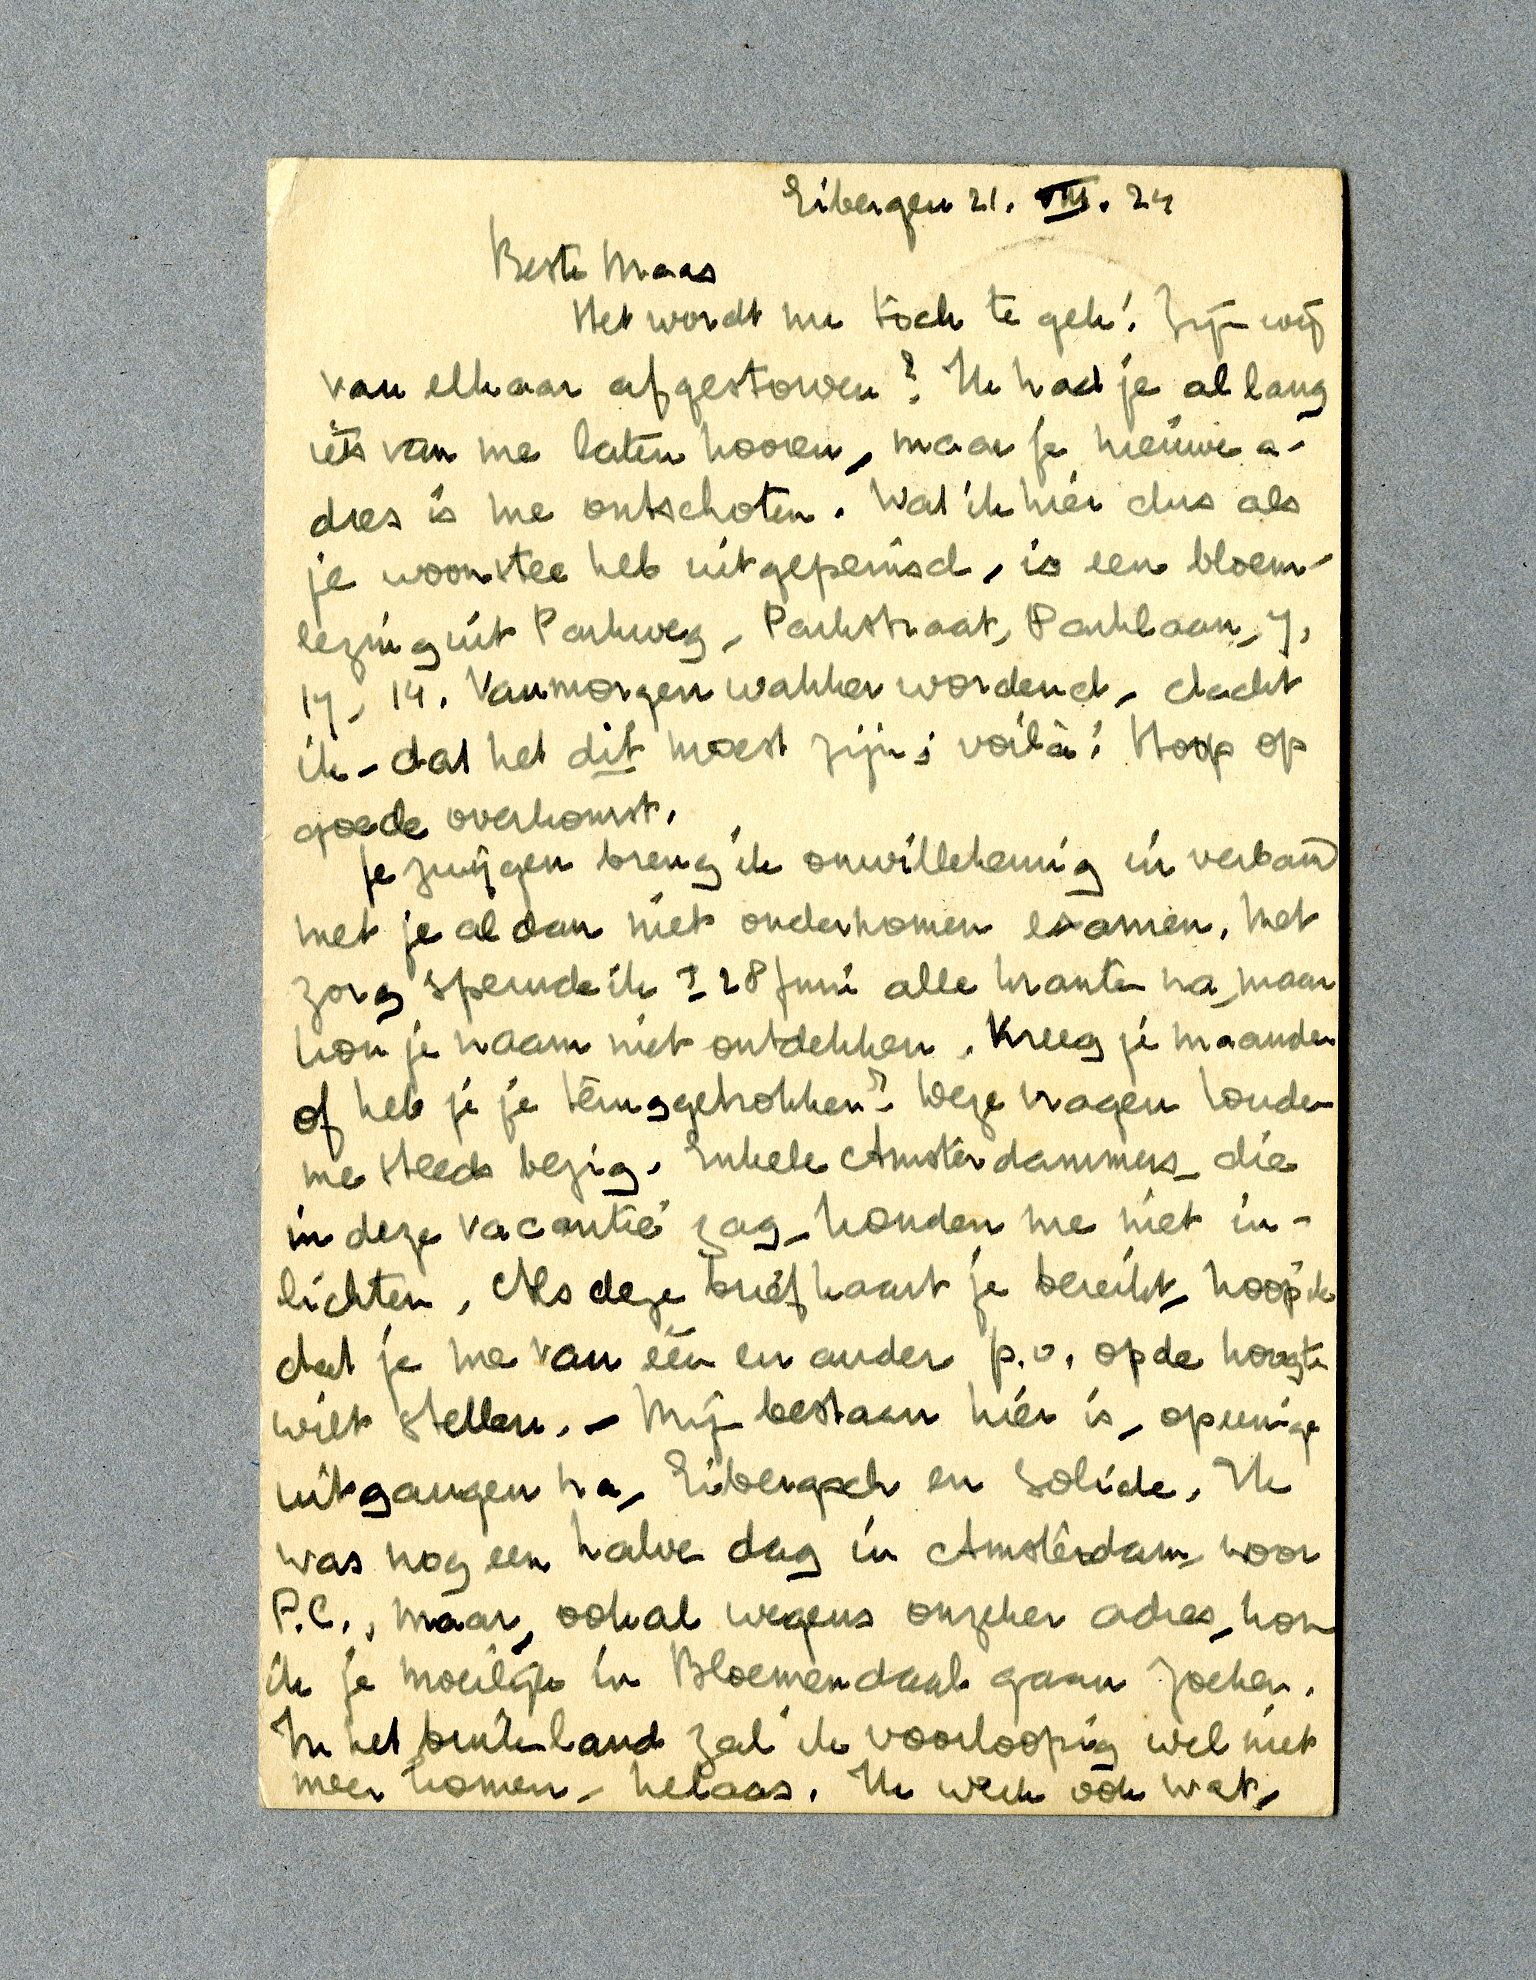 Eibergen 21. VIII. 24
Beste Maas
Het wordt me toch te gek! Zijn wij
van elkaar afgestorven? Ik had je al lang
iets van me laten hooren, maar je nieuwe a-
dres is me ontschoten. Wat ik hier dus als
je woonstee heb uitgepeinsd, is een bloem-
lezing uit Parkweg, Parkstraat, Parklaan, 7,
17, 14. Vanmorgen wakker wordend, dacht
ik, dat het dit moest zijn; voilà! Hoop op
goede overkomst.
Je zwijgen breng ik onwillekeurig in verband
met je al dan niet ondernomen examen. Met
zorg speurde ik ± 28 Juni alle kranten na, maar
kon je naam niet ontdekken. Kreeg je maanden
of heb je je teruggetrokken? Deze vragen houden
me steeds bezig. Enkele Amsterdammers, die
in deze vacantie zag, konden me niet in-
lichten. Als deze briefkaart je bereikt, hoop ik
dat je me van één en ander p.o. op de hoogte
wilt stellen. – Mijn bestaan hier is, op eenige
uitgangen na, Eibergsch en solide. Ik
was nog een halve dag in Amsterdam voor
P.C., maar, ook al wegens onzeker adres, kon
ik je moeilijk in Bloemendaal gaan zoeken.
In het buitenland zal ik voorloopig wel niet
meer komen, helaas. Ik werk ook wat,